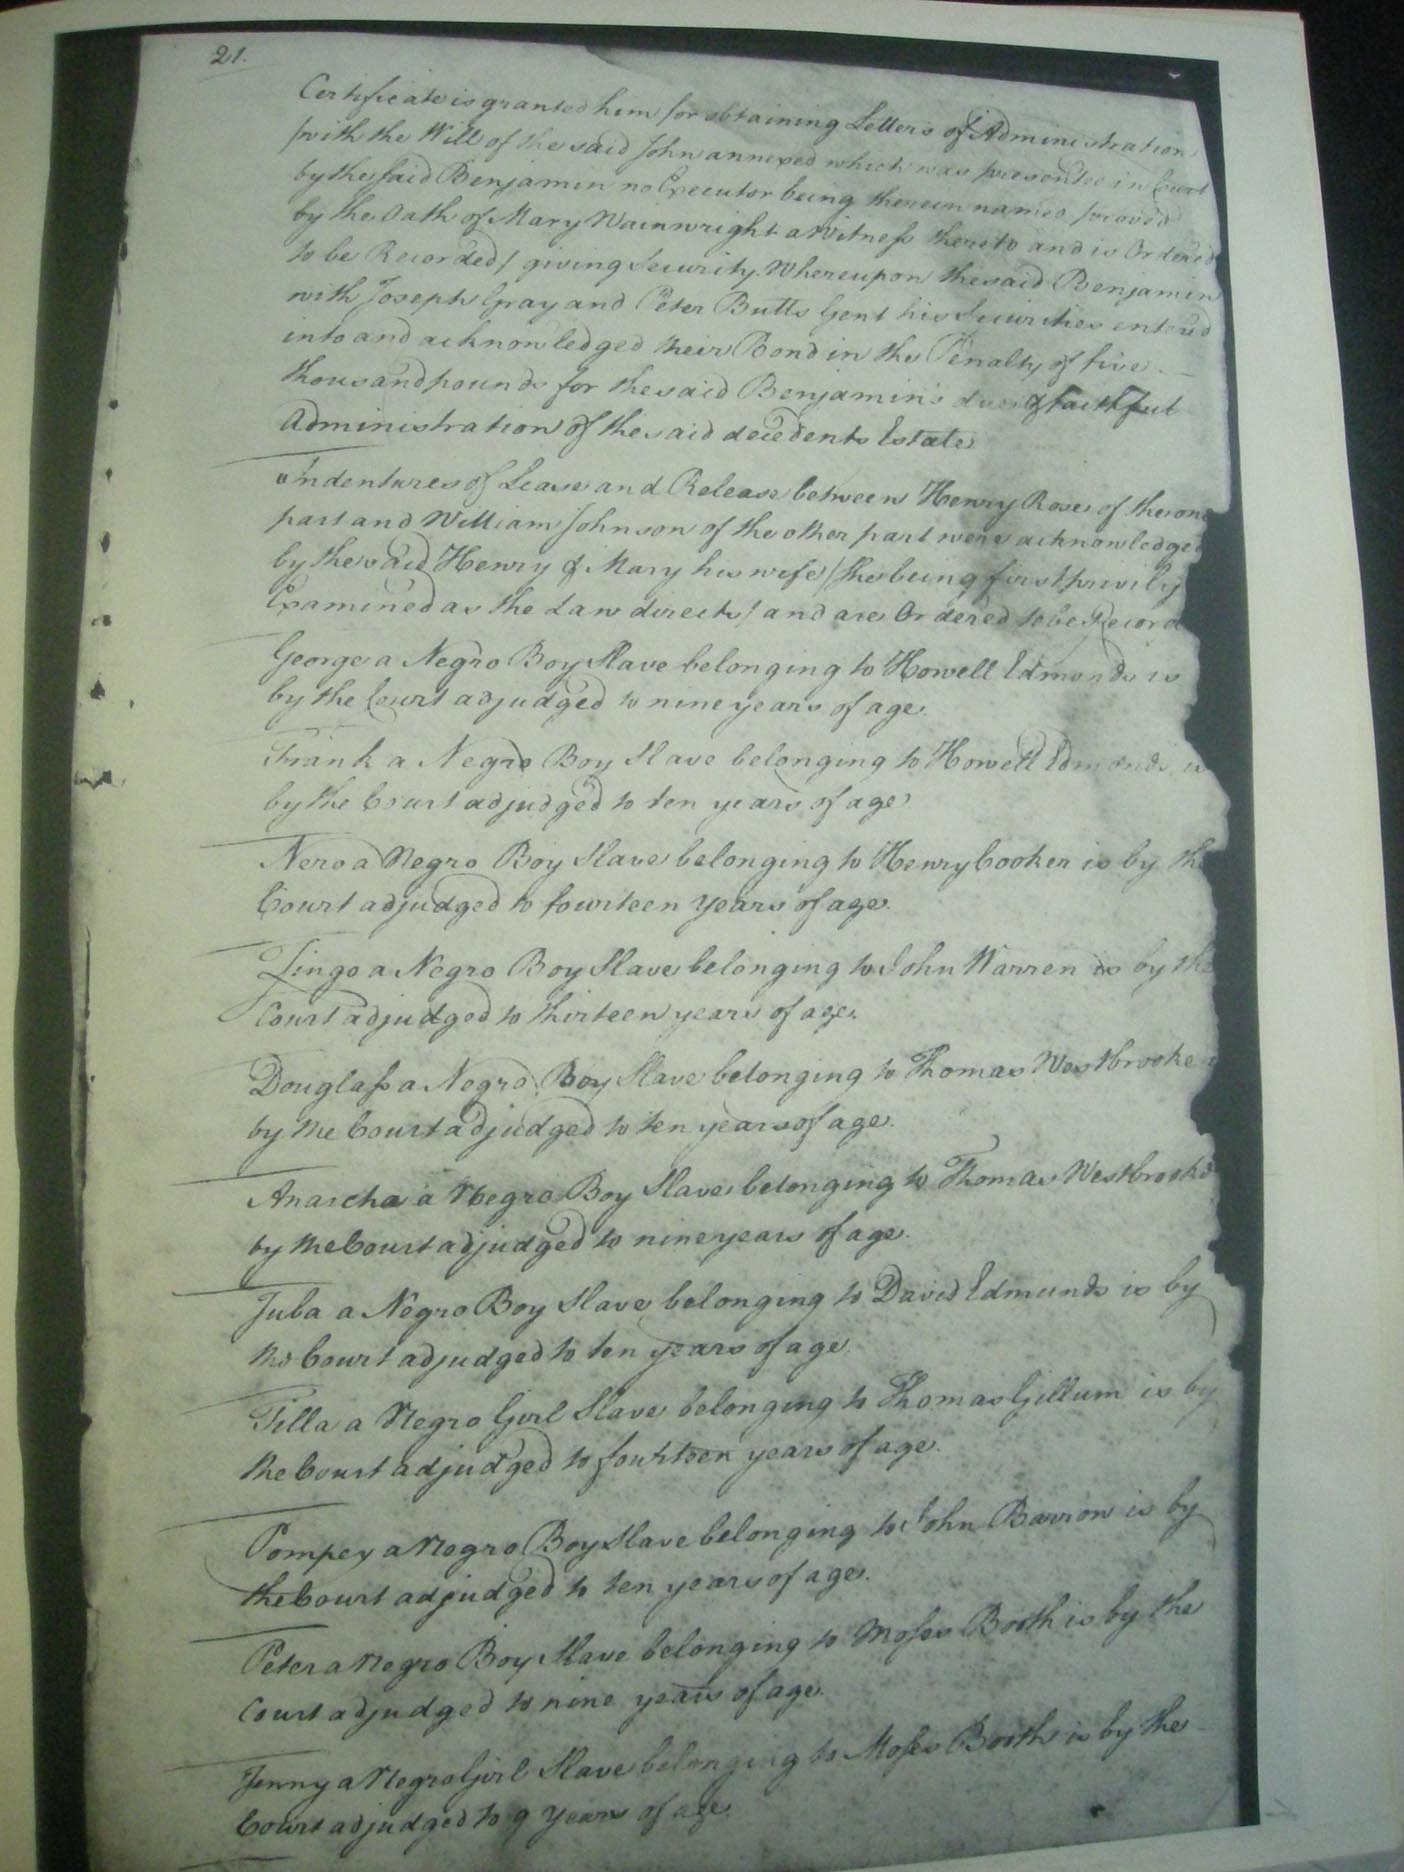 21.
Certificate is granted him for obtaining Letters of Administration
/with the Will of the said John annexed which was presented in Court
by the said Benjamin no Executor being therein named proved
by the Oath of Mary Wainwright a Witness thereto and is Ordered
to be Recorded/ giving Security. Whereupon the said Benjamin
with Joseph Gray and Peter Butts Gent his Securities entered
into and acknowledged their Bond in the Penalty of five
thousand pounds for the said Benjamin's due & faithful
Administration of the said decedents Estate
Indentures of Lease and Release between Henry Rose of the one
part and William Johnson of the other part were acknowledged
by the said Henry & Mary his wife /she being first privily
Examined as the Law directs/ and are Ordered to be Record
George a Negro Boy Slave belonging to Howell Edmonds is
by the Court adjudged to nine years of age.
Frank a Negro Boy Slave belonging to Howell Edmonds is
by the Court adjudged to ten years of age
Nero a Negro Boy Slave belonging to Henry Cooker is by the
Court adjudged to fourteen years of age.
Lingo a Negro Boy Slave belonging to John Warren is by the
Court adjudged to thirteen years of age.
Douglass a Negro Boy Slave belonging to Thomas Westbrooke
by the Court adjudged to ten years of age.
Anarcha a Negro Boy Slave belonging to Thomas Westbrooke
by the Court adjudged to nine years of age.
Juba a Negro Boy Slave belonging to David Edmunds is by
the Court adjudged to ten years of age
Tilla a Negro Girl Slave belonging to Thomas Gillum is by
the Court adjudged to fourteen years of age.
Pompey a Negro Boy Slave belonging to John Barrow is by
the Court adjudged to ten years of age.
Peter a Negro Boy Slave belonging to Moses Booth is by the
Court adjudged to nine years of age.
Jenny a Negro Girl Slave belonging to Moses Booth is by the
Court adjudged to 9 years of age.